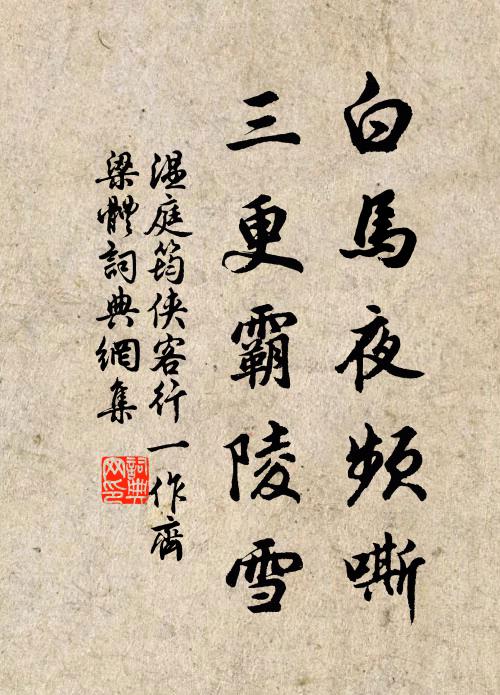 白馬夜頻嘶
三更霸陵雪
温庭筠俠客行一作齊
梁體詞典網集
詞典
网印